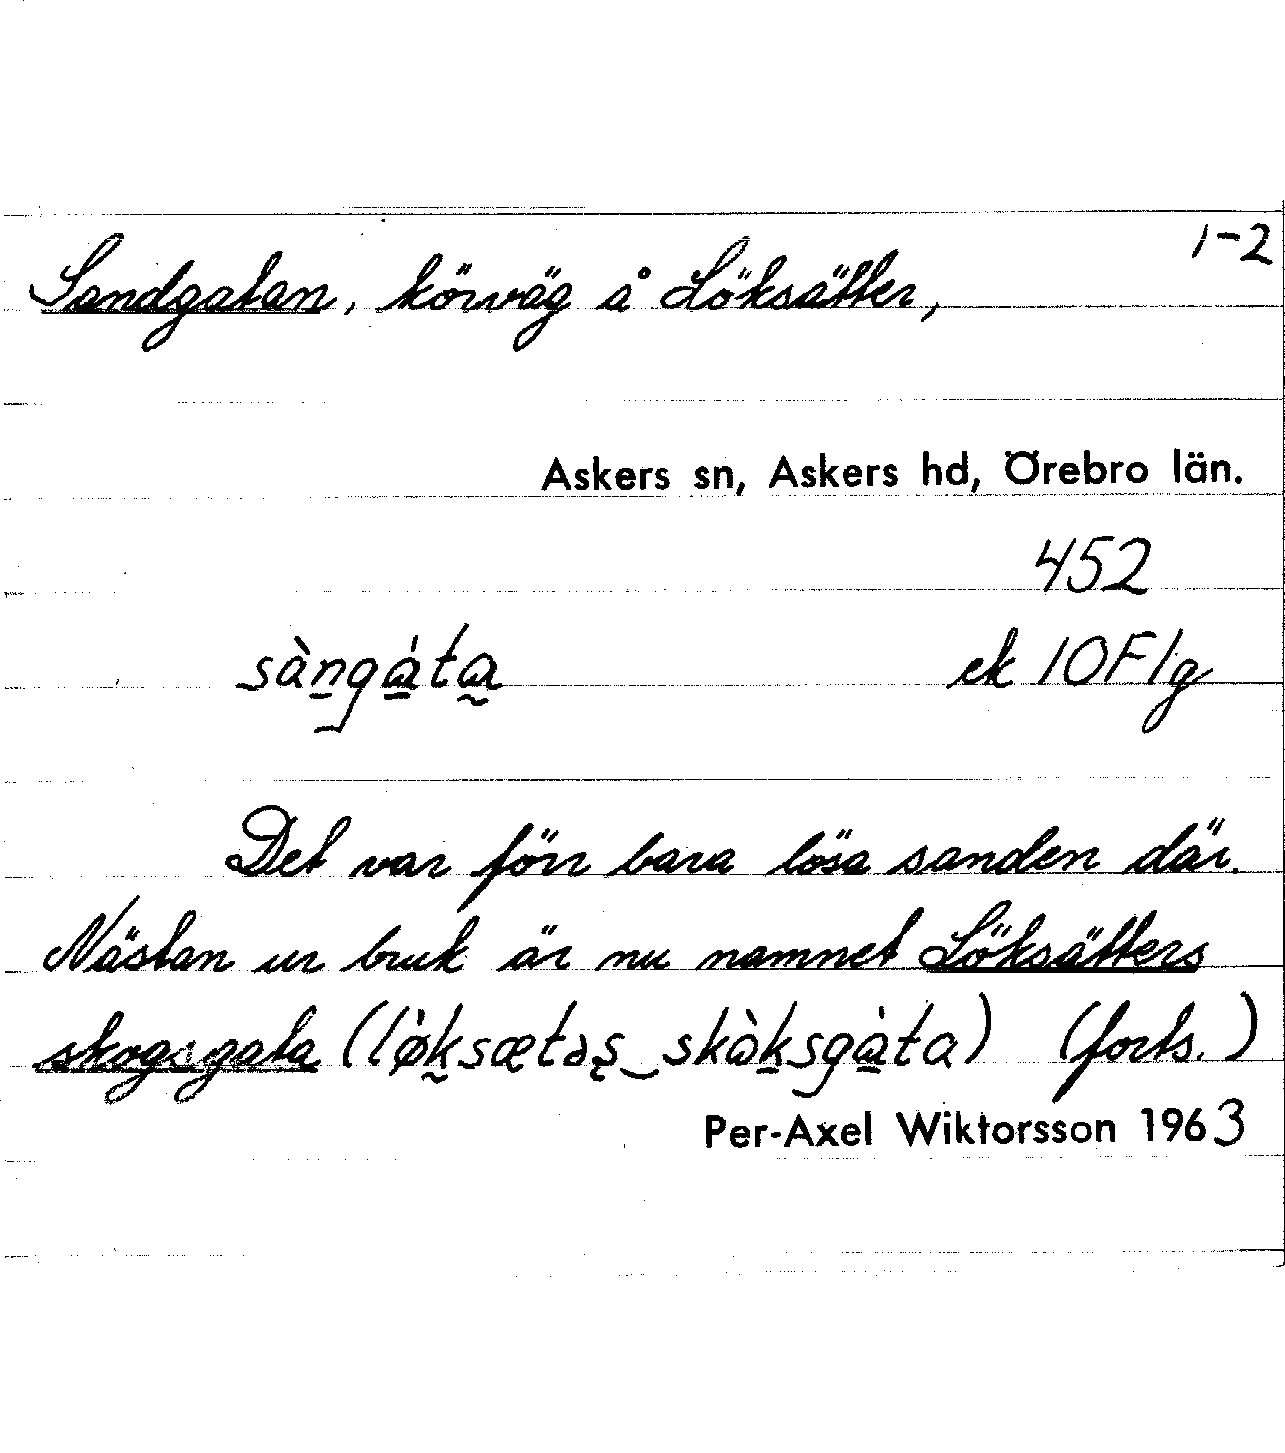 1-2
Sandgatan, körväg å Löksätter,
Askers sn, Askers hd, Örebro län.
452
sàngáta ek 10F1g
Det var förr bara lösa sanden där.
Nästan ur bruk är nu namnet Löksätters
skogsgata (lø̀ksætəs‿skàksgàta) (forts.)
Per-Axel Wiktorsson 1963